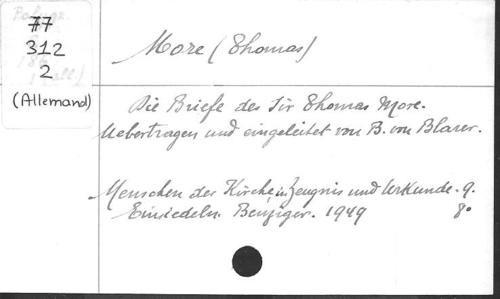 77
312
2
(Allemand)
More (Thomas)
Die Briefe des Sir Thomas More.
Uebertragen und eingeleitet von B. von Blarer.
Menschen der Kirche in Zeugnis und Urkunde. 9.
Einsiedeln. Benziger. 1949 8°